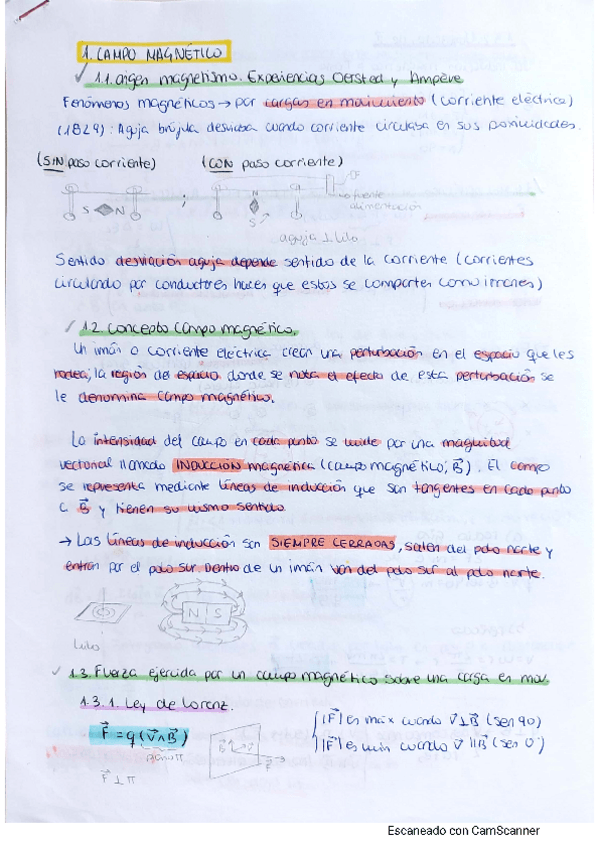 1. CAMPO MAGNÉTICO
1.1. Origen magnetismo. Experiencias Oersted y Ampère
Fenómenos magnéticos → por cargas en movimiento (corriente eléctrica)
(1829): Aguja brújula desviaba cuando corriente circulaba en sus proximidades.
(SIN paso corriente) (CON paso corriente)
S N ; N S fuente alimentación
aguja ⊥ hilo
Sentido desviación aguja depende sentido de la corriente (corrientes
circulando por conductores hacen que estos se comporten como imanes)
1.2. Concepto campo magnético.
Un imán o corriente eléctrica crean una perturbación en el espacio que les
rodea, la región del espacio donde se nota el efecto de esta perturbación se
le denomina campo magnético.
La intensidad del campo en cada punto se mide por una magnitud
vectorial llamada INDUCCIÓN magnética (campo magnético, B⃗). El campo
se representa mediante líneas de inducción que son tangentes en cada punto
a B⃗ y tienen su mismo sentido.
→ Las líneas de inducción son SIEMPRE CERRADAS, salen del polo norte y
entran por el polo sur. Dentro de un imán van del polo sur al polo norte.
N S
hilo
1.3. Fuerza ejercida por un campo magnético sobre una carga en mov
1.3.1. Ley de Lorenz.
F⃗ = q (v⃗ ∧ B⃗)
|F⃗| es máx cuando v⃗ ⊥ B⃗ (sen 90)
|F⃗| es min cuando v⃗ ∥ B⃗ (sen 0)
B⃗ v⃗ F⃗
F⃗ ⊥ π
Escaneado con CamScanner